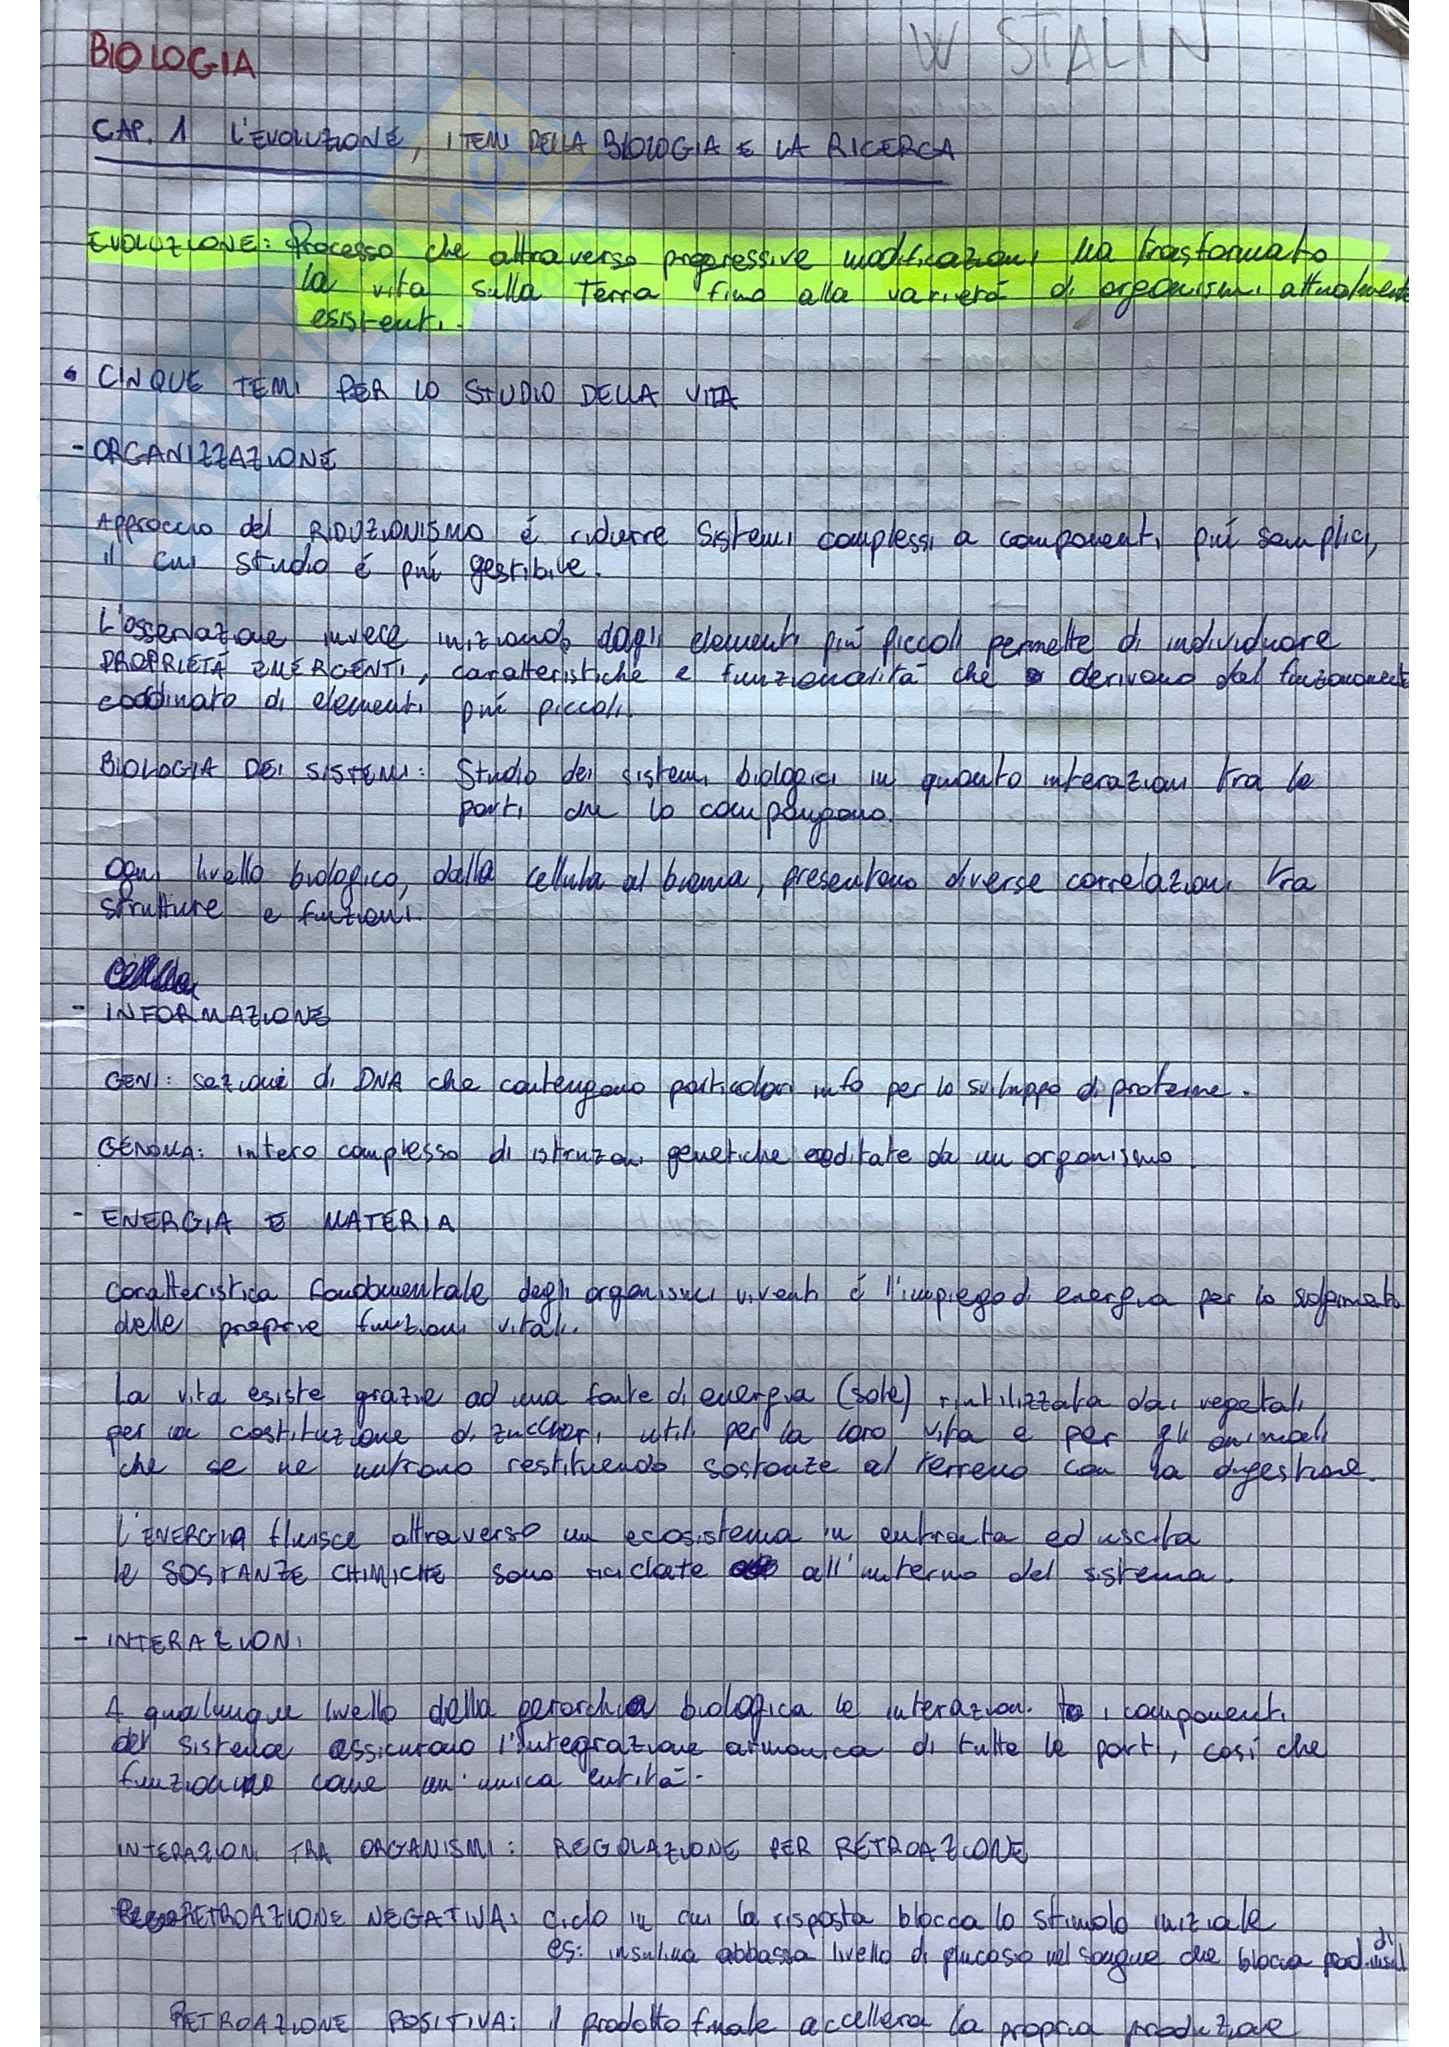 W STALIN
BIOLOGIA
CAP. 1 L'EVOLUZIONE, I TEMI DELLA BIOLOGIA E LA RICERCA
EVOLUZIONE: Processo che attraverso progressive modificazioni ha trasformato
la vita sulla Terra fino alla varietà di organismi attualmente
esistenti.
• CINQUE TEMI PER LO STUDIO DELLA VITA
- ORGANIZZAZIONE
Approccio del RIDUZIONISMO é ridurre sistemi complessi a componenti piú semplici,
il cui studio é piú gestibile.
L'osservazione invece iniziando dagli elementi piú piccoli permette di individuare
PROPRIETÀ EMERGENTI, caratteristiche e funzionalità che derivano dal funzionamento
coordinato di elementi piú piccoli.
BIOLOGIA DEI SISTEMI: Studio dei sistemi biologici in quanto interazioni tra le
parti che lo compongono.
Ogni livello biologico, dalla cellula al bioma, presentano diverse correlazioni tra
strutture e funzioni.
- INFORMAZIONE
GENI: sezioni di DNA che contengono particolari info per lo sviluppo di proteine.
GENOMA: intero complesso di istruzioni genetiche ereditate da un organismo.
- ENERGIA E MATERIA
Caratteristica fondamentale degli organismi viventi é l'impiego di energia per lo svolgimento
delle proprie funzioni vitali.
La vita esiste grazie ad una fonte di energia (sole) riutilizzata dai vegetali
per la costituzione di zuccheri, utili per la loro vita e per gli animali
che se ne nutrono restituendo sostanze al terreno con la digestione.
L'ENERGIA fluisce attraverso un ecosistema in entrata ed uscita
le SOSTANZE CHIMICHE sono riciclate all'interno del sistema.
- INTERAZIONI
A qualunque livello della gerarchia biologica le interazioni tra i componenti
del sistema assicurano l'integrazione armonica di tutte le parti, così che
funzionino come un'unica entità.
INTERAZIONI TRA ORGANISMI: REGOLAZIONE PER RETROAZIONE
RETROAZIONE NEGATIVA: ciclo in cui la risposta blocca lo stimolo iniziale
es: insulina abbassa livello di glucosio nel sangue che blocca prod. di insul
RETROAZIONE POSITIVA: il prodotto finale accellera la propria produzione